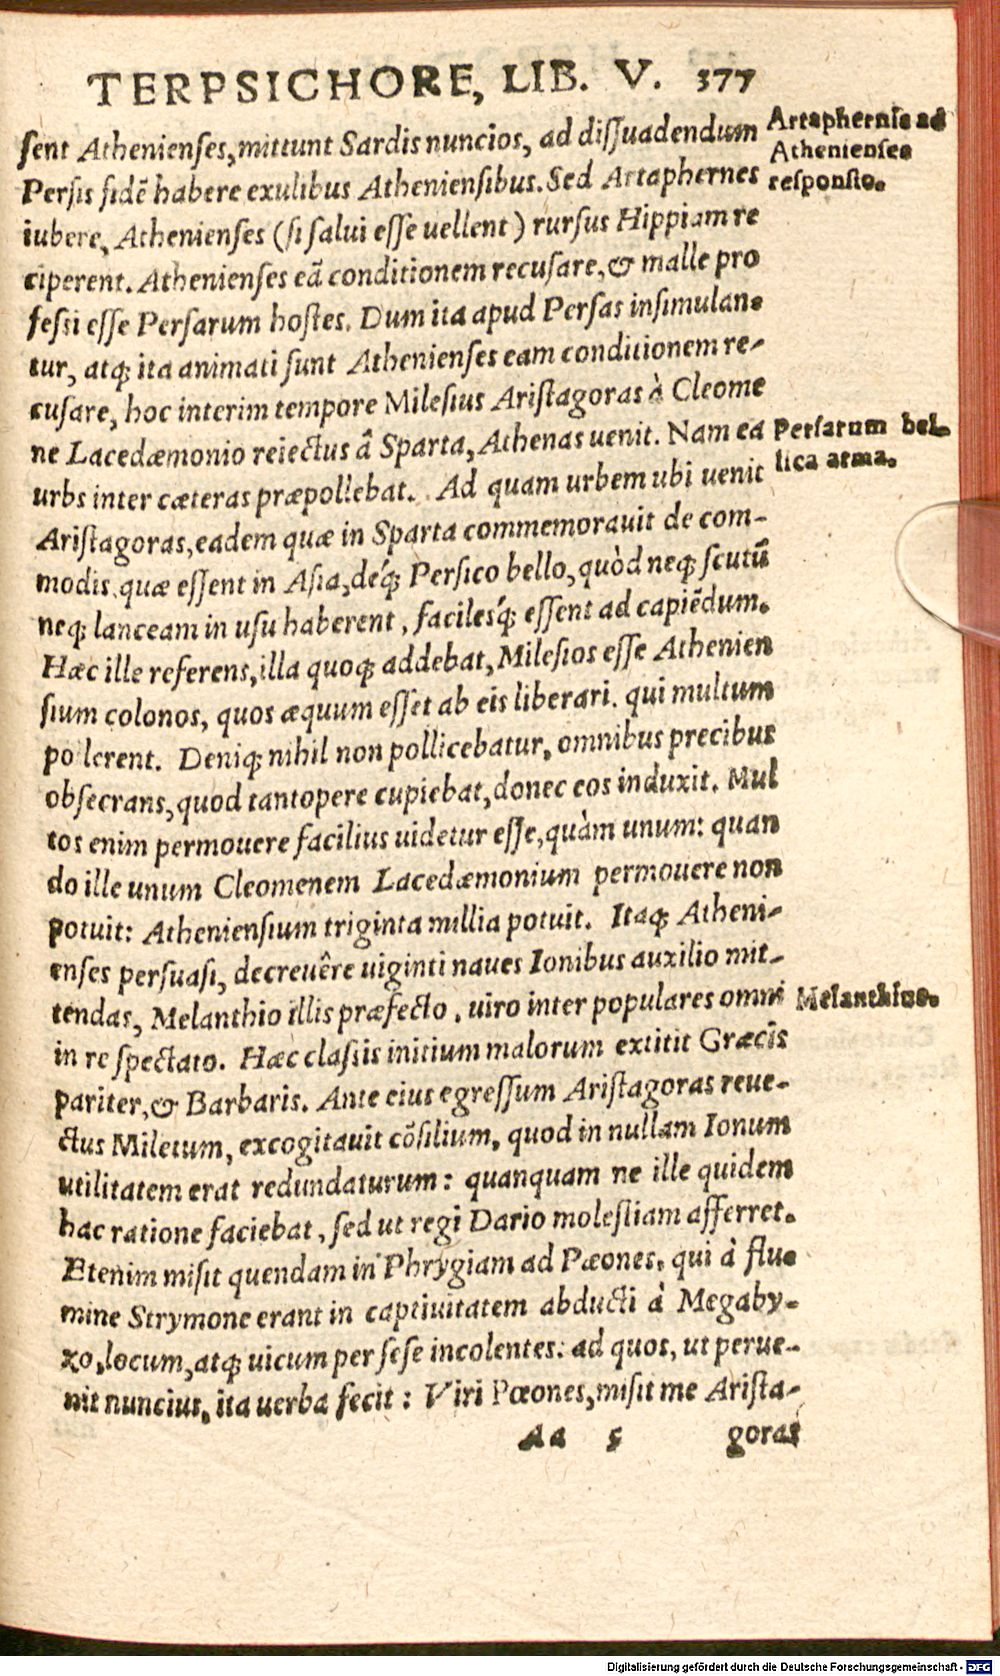 TERPSICHORE, LIB. V. 377
ſent Athenienſes, mittunt Sardis nuncios, ad diſſuadendum
Perſis fidẽ habere exulibus Athenienſibus. Sed Artaphernes
iubere, Athenienſes (ſi ſalui eſſe uellent) rurſus Hippiam re
ciperent. Athenienſes eã conditionem recuſare, & malle pro
feſſi eſſe Perſarum hoſtes. Dum ita apud Perſas inſimulan-
tur, atq; ita animati ſunt Athenienſes eam conditionem re-
cuſare, hoc interim tempore Mileſius Ariſtagoras à Cleome
ne Lacedæmonio reiectus â Sparta, Athenas uenit. Nam ea
urbs inter cæteras præpollebat. Ad quam urbem ubi uenit
Ariſtagoras, eadem quæ in Sparta commemorauit de com-
modis, quæ eſſent in Aſia, déq; Perſico bello, quòd neq; ſcutũ
neq; lanceam in uſu haberent, facilesq́; eſſent ad capiẽdum.
Hæc ille referens, illa quoq; addebat, Mileſios eſſe Athenien
ſium colonos, quos æquum eſſet ab eis liberari. qui multum
pollerent. Deniq; nihil non pollicebatur, omnibus precibus
obſecrans, quod tantopere cupiebat, donec eos induxit. Mul
tos enim permouere facilius uidetur eſſe, quàm unum: quan
do ille unum Cleomenem Lacedæmonium permouere non
potuit: Athenienſium triginta millia potuit. Itaq; Atheni-
enſes perſuaſi, decreuêre uiginti naues Ionibus auxilio mit-
tendas, Melanthio illis præfecto, uiro inter populares omni
in re ſpectato. Hæc claſſis initium malorum extitit Græcis
pariter, & Barbaris. Ante eius egreſſum Ariſtagoras reue-
ctus Miletum, excogitauit cõſilium, quod in nullam Ionum
utilitatem erat redundaturum: quanquam ne ille quidem
hac ratione faciebat, ſed ut regi Dario moleſtiam afferret.
Etenim miſit quendam in Phrygiam ad Pæones, qui à flu-
mine Strymone erant in captiuitatem abducti à Megaby-
zo, locum, atq; uicum per ſeſe incolentes: ad quos, ut perue-
nit nuncius, ita uerba fecit: Viri Pœones, miſit me Ariſta-
Aa 5 goras
Artaphernis ad
Athenienſes
reſponſio.
Perſarum bel-
lica arma.
Melanthius.
Digitalisierung gefördert durch die Deutsche Forschungsgemeinschaft - DFG